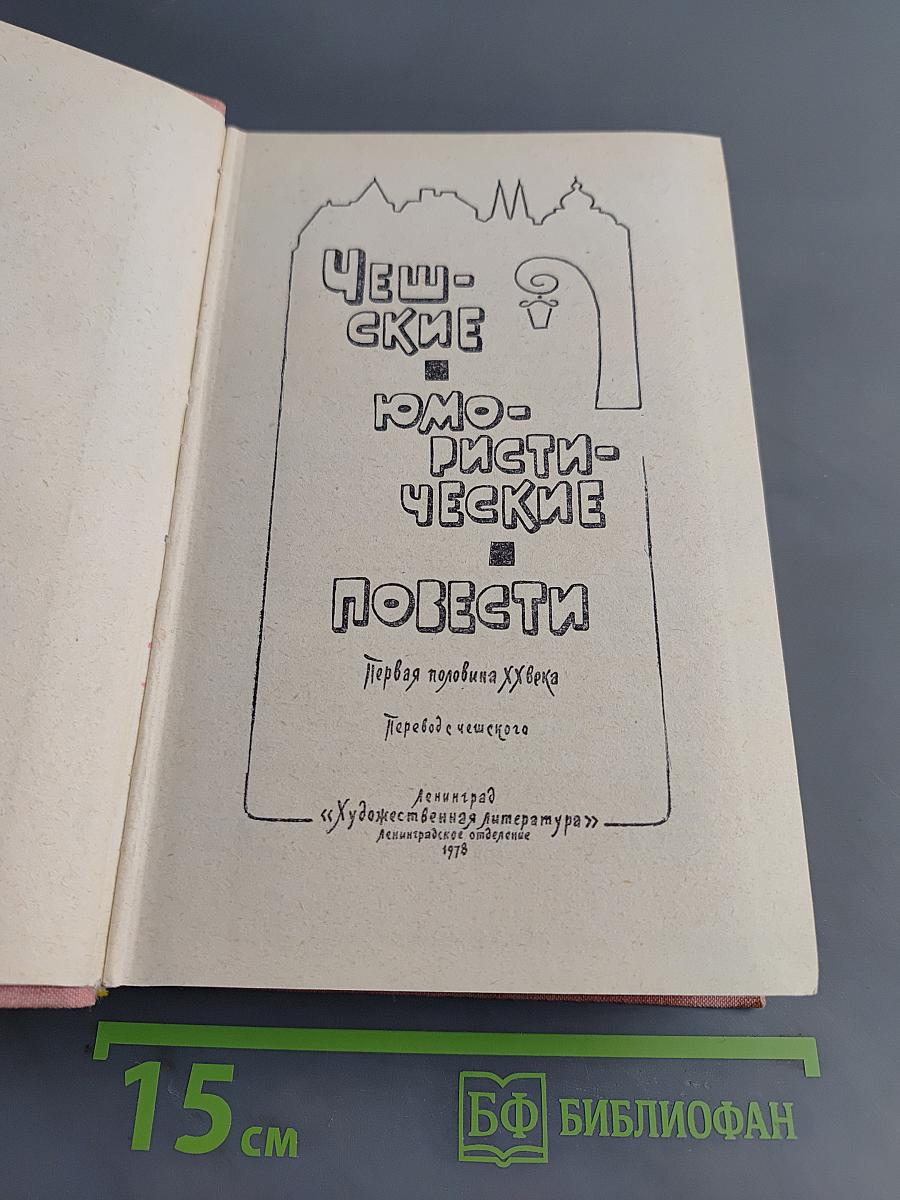 Чеш-
ские
юмо-
ристи-
ческие
повести
Первая половина XX века
Перевод с чешского
Ленинград
«Художественная литература»
Ленинградское отделение
1978
15 см
БФ БИБЛИОФАН